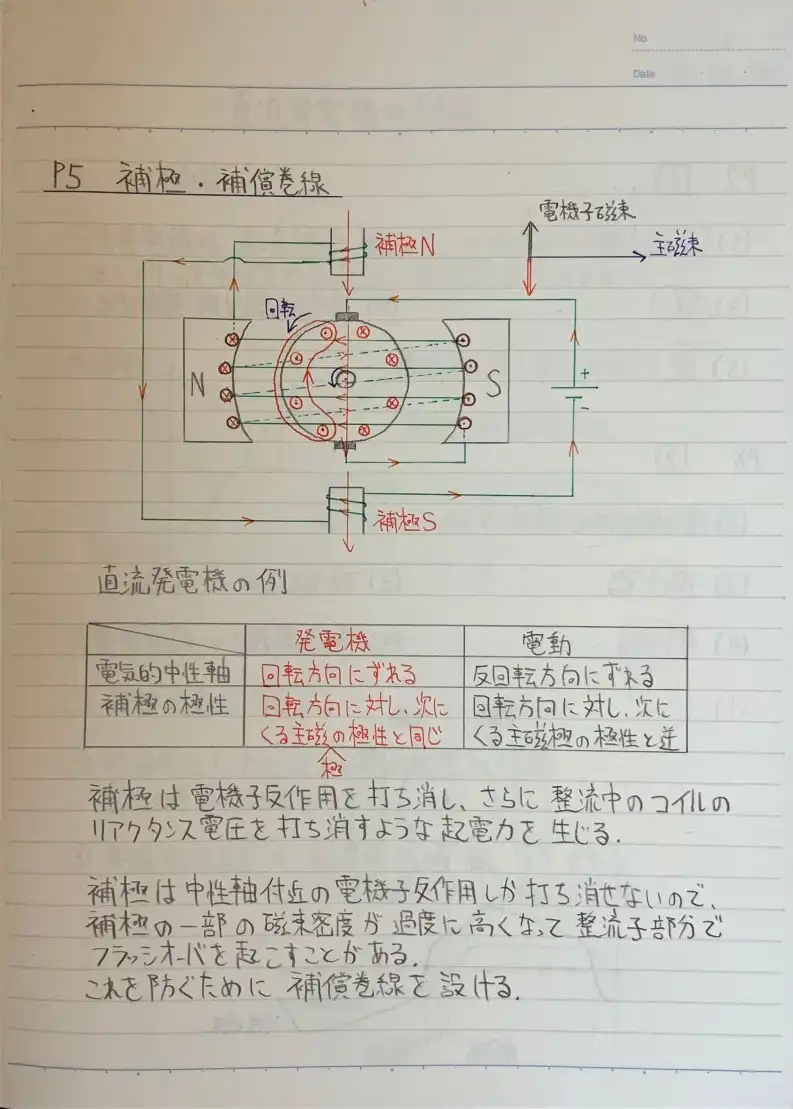 No.
Date
P5 補極・補償巻線
電機子磁束
主磁束
補極N
回転
N
S
+
-
補極S
直流発電機の例
発電機
電動
電気的中性軸
回転方向にずれる
反回転方向にずれる
補極の極性
回転方向に対し、次に
くる主磁の極性と同じ
極
回転方向に対し、次に
くる主磁極の極性と逆
補極は電機子反作用を打ち消し、さらに整流中のコイルの
リアクタンス電圧を打ち消すような起電力を生じる.
補極は中性軸付近の電機子反作用しか打ち消せないので、
補極の一部の磁束密度が過度に高くなって整流子部分で
フラッシオーバを起こすことがある.
これを防ぐために補償巻線を設ける.